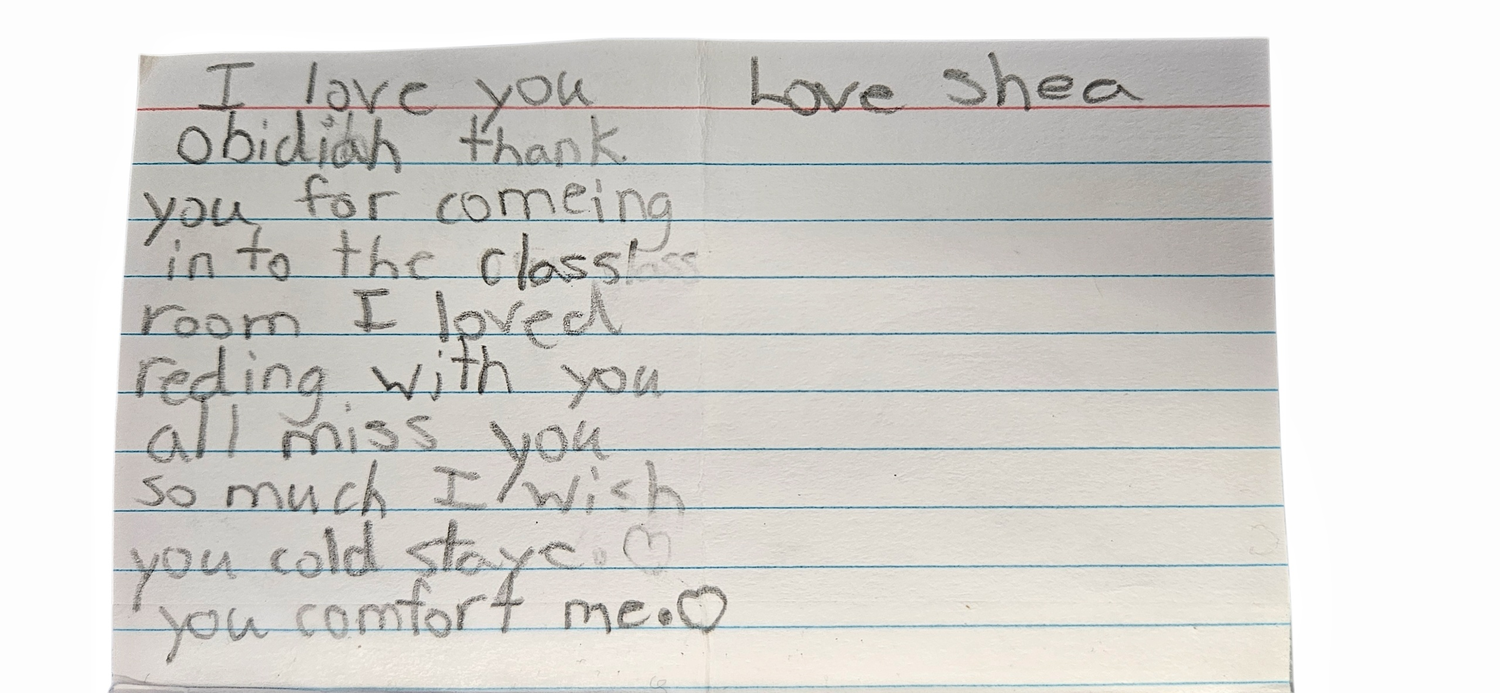 I love you
obidiah thank
you for comeing
in to the class
room I loved
reding with you
all miss you
so much I wish
you cold staye. ♡
you comfort me. ♡
Love Shea